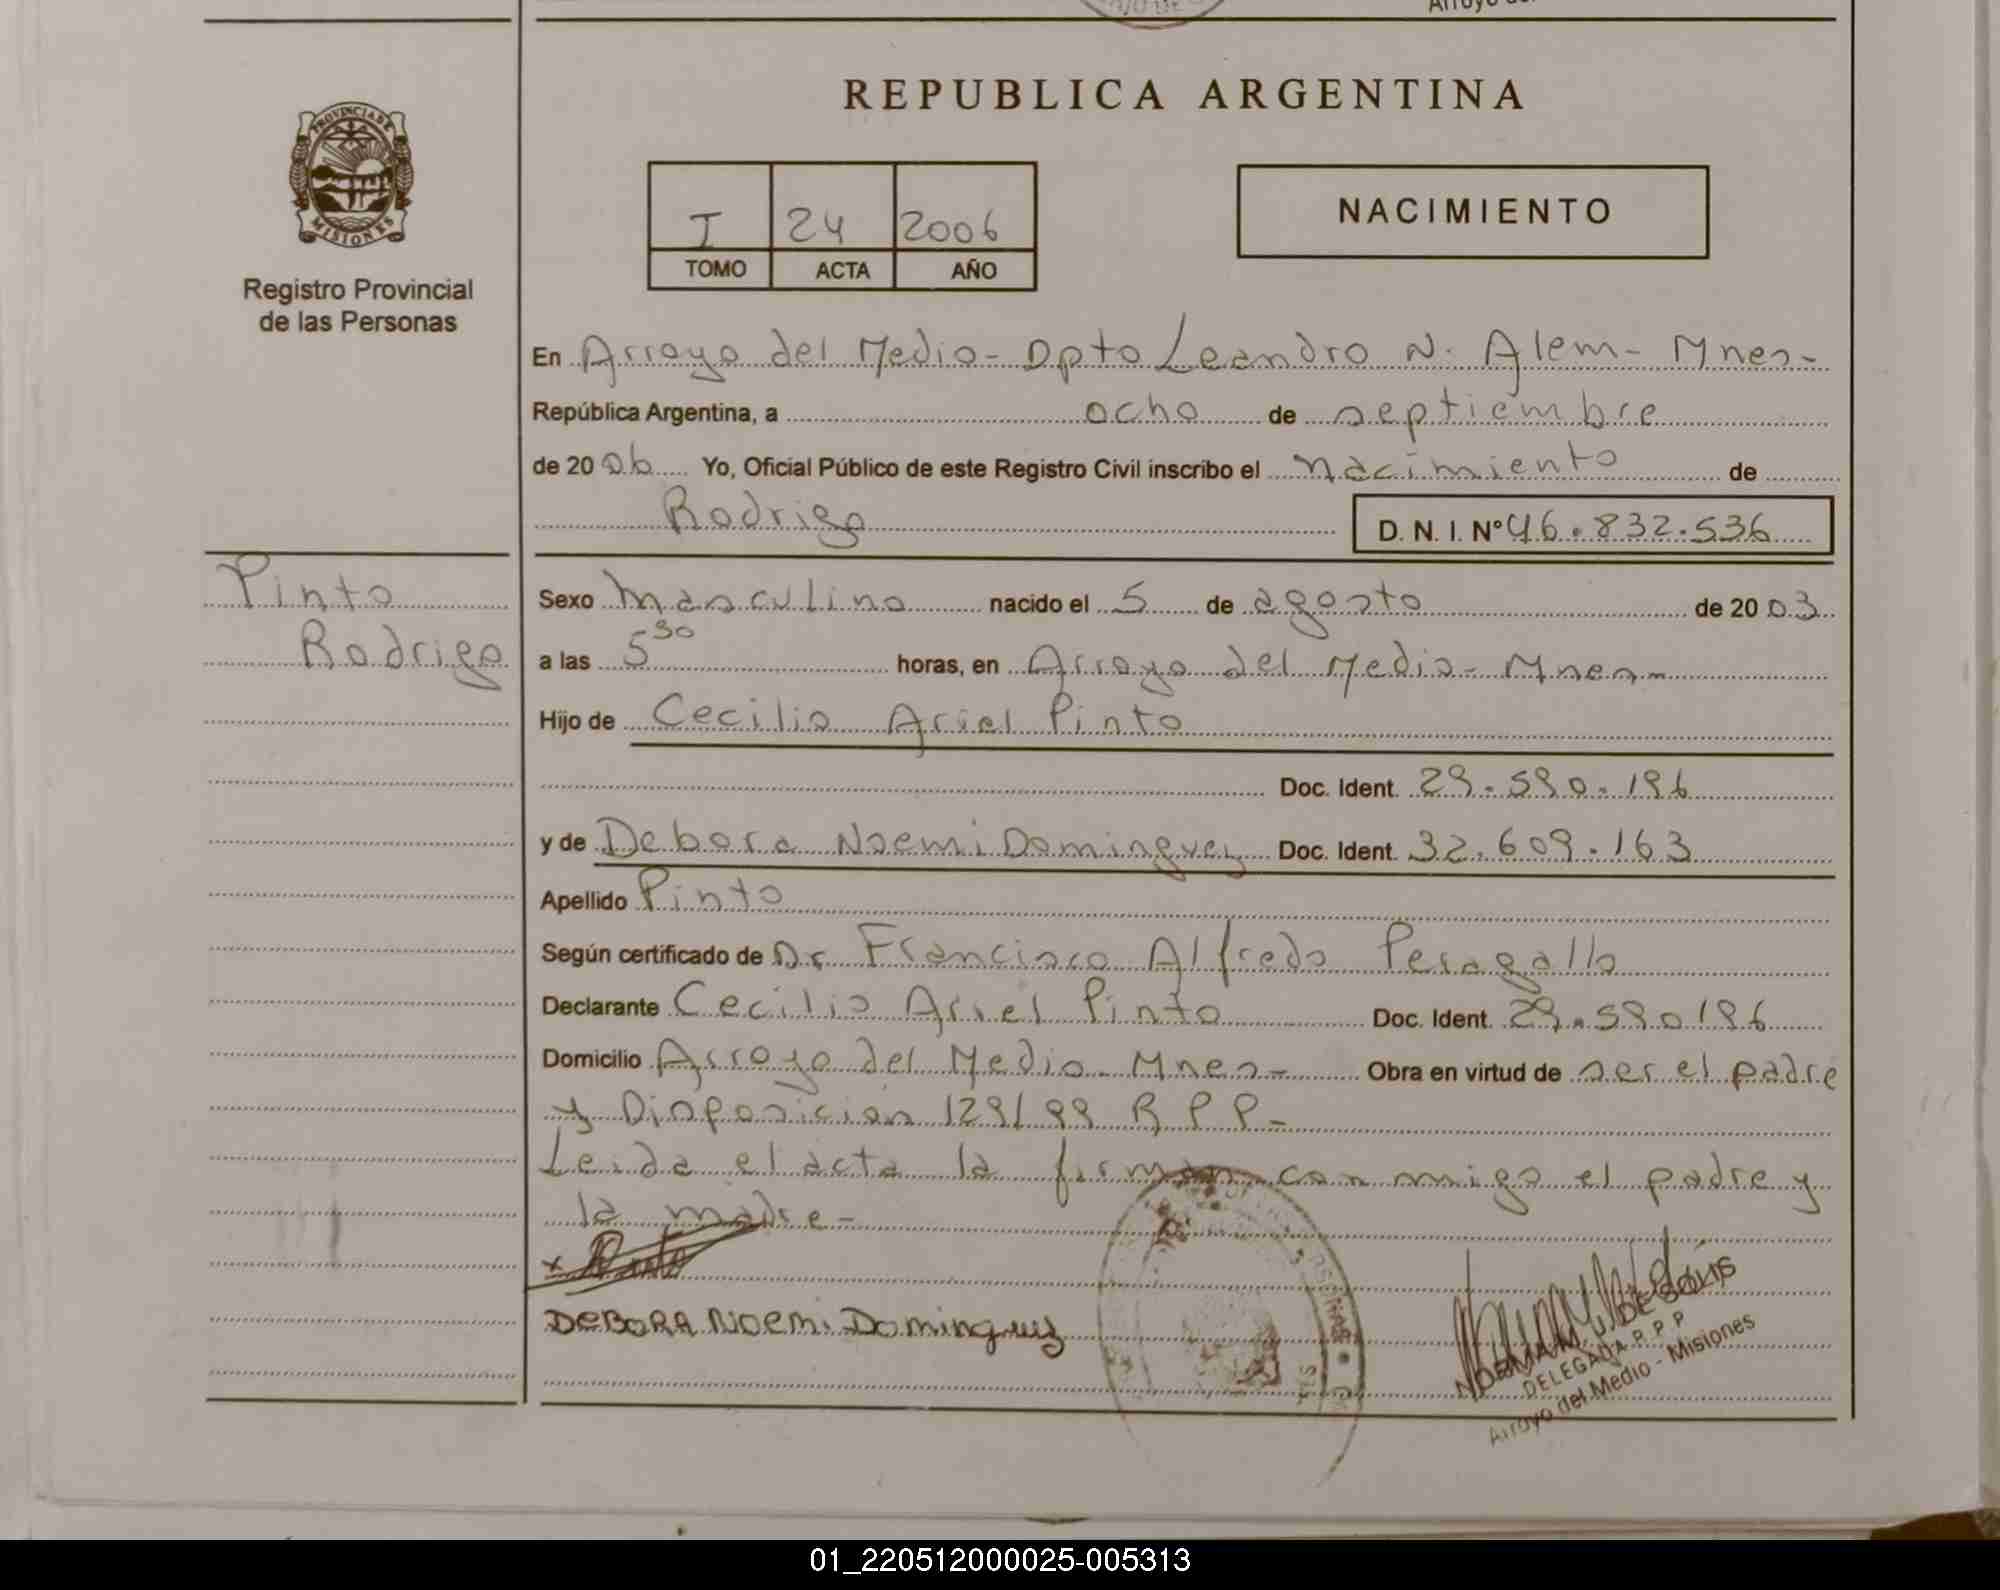 REPUBLICA ARGENTINA
PROVINCIA DE
MISIONES
Registro Provincial
de las Personas
I 24 2006
TOMO ACTA AÑO
NACIMIENTO
En Arroyo del Medio - Dpto Leandro N. Alem - Mnes -
República Argentina, a ocho de septiembre
de 2006 Yo, Oficial Público de este Registro Civil inscribo el nacimiento de
Rodrigo D. N. I. Nº 46.832.536
Pinto
Rodrigo
Sexo masculino nacido el 5 de agosto de 2003
a las 5 30 horas, en Arroyo del Medio - Mnes -
Hijo de Cecilio Ariel Pinto
Doc. Ident. 29.590.196
y de Debora Noemi Dominguez Doc. Ident. 32.609.163
Apellido Pinto
Según certificado de Dr Francisco Alfredo Peragallo
Declarante Cecilio Ariel Pinto Doc. Ident. 29.590196
Domicilio Arroyo del Medio - Mnes - Obra en virtud de ser el padre
y Disposicion 129/99 R P P -
Leida el acta la firman conmigo el padre y
la madre -
x Pinto
DEBORA NOEMI Dominguez
NORMA M. DE SOLIS
DELEGADA R. P. P
Arroyo del Medio - Misiones
01_220512000025-005313